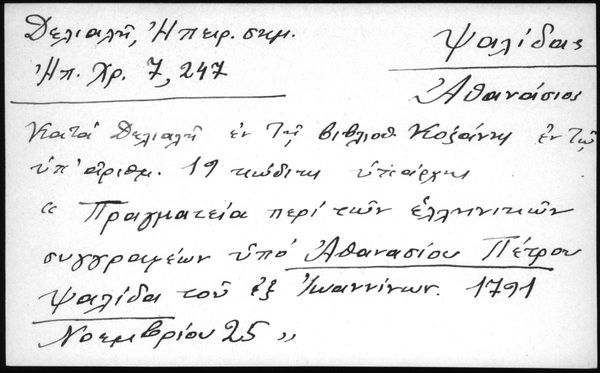 Δελιαλῆ, Ἠπειρ. σημ.
Ἠπ. Χρ. 7, 247
Ψαλίδας
Ἀθανάσιος
Κατά Δελιαλῆ ἐν τῇ βιβλιοθ. Κοζάνης ἐν τῷ
ὑπ' ἀριθμ. 19 κώδικι ὑπάρχει
“ Πραγματεία περί τῶν ἑλληνικῶν
συγγραφέων ὑπό Ἀθανασίου Πέτρου
Ψαλίδα τοῦ ἐξ Ἰωαννίνων. 1791
Νοεμβρίου 25 „